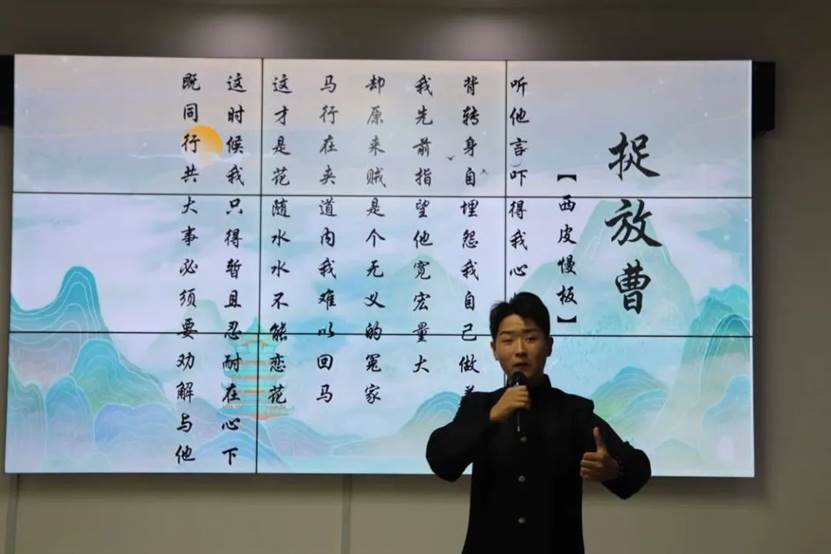 捉放曹
【西皮慢板】
听他言吓得我心
背转身自埋怨我自己做
我先前指望他宽宏量大
却原来贼是个无义的冤家
马行在夹道内我难以回马
这才是花随水水不能恋花
这时候我只得暂且忍耐在心下
既同行共大事必须要劝解与他